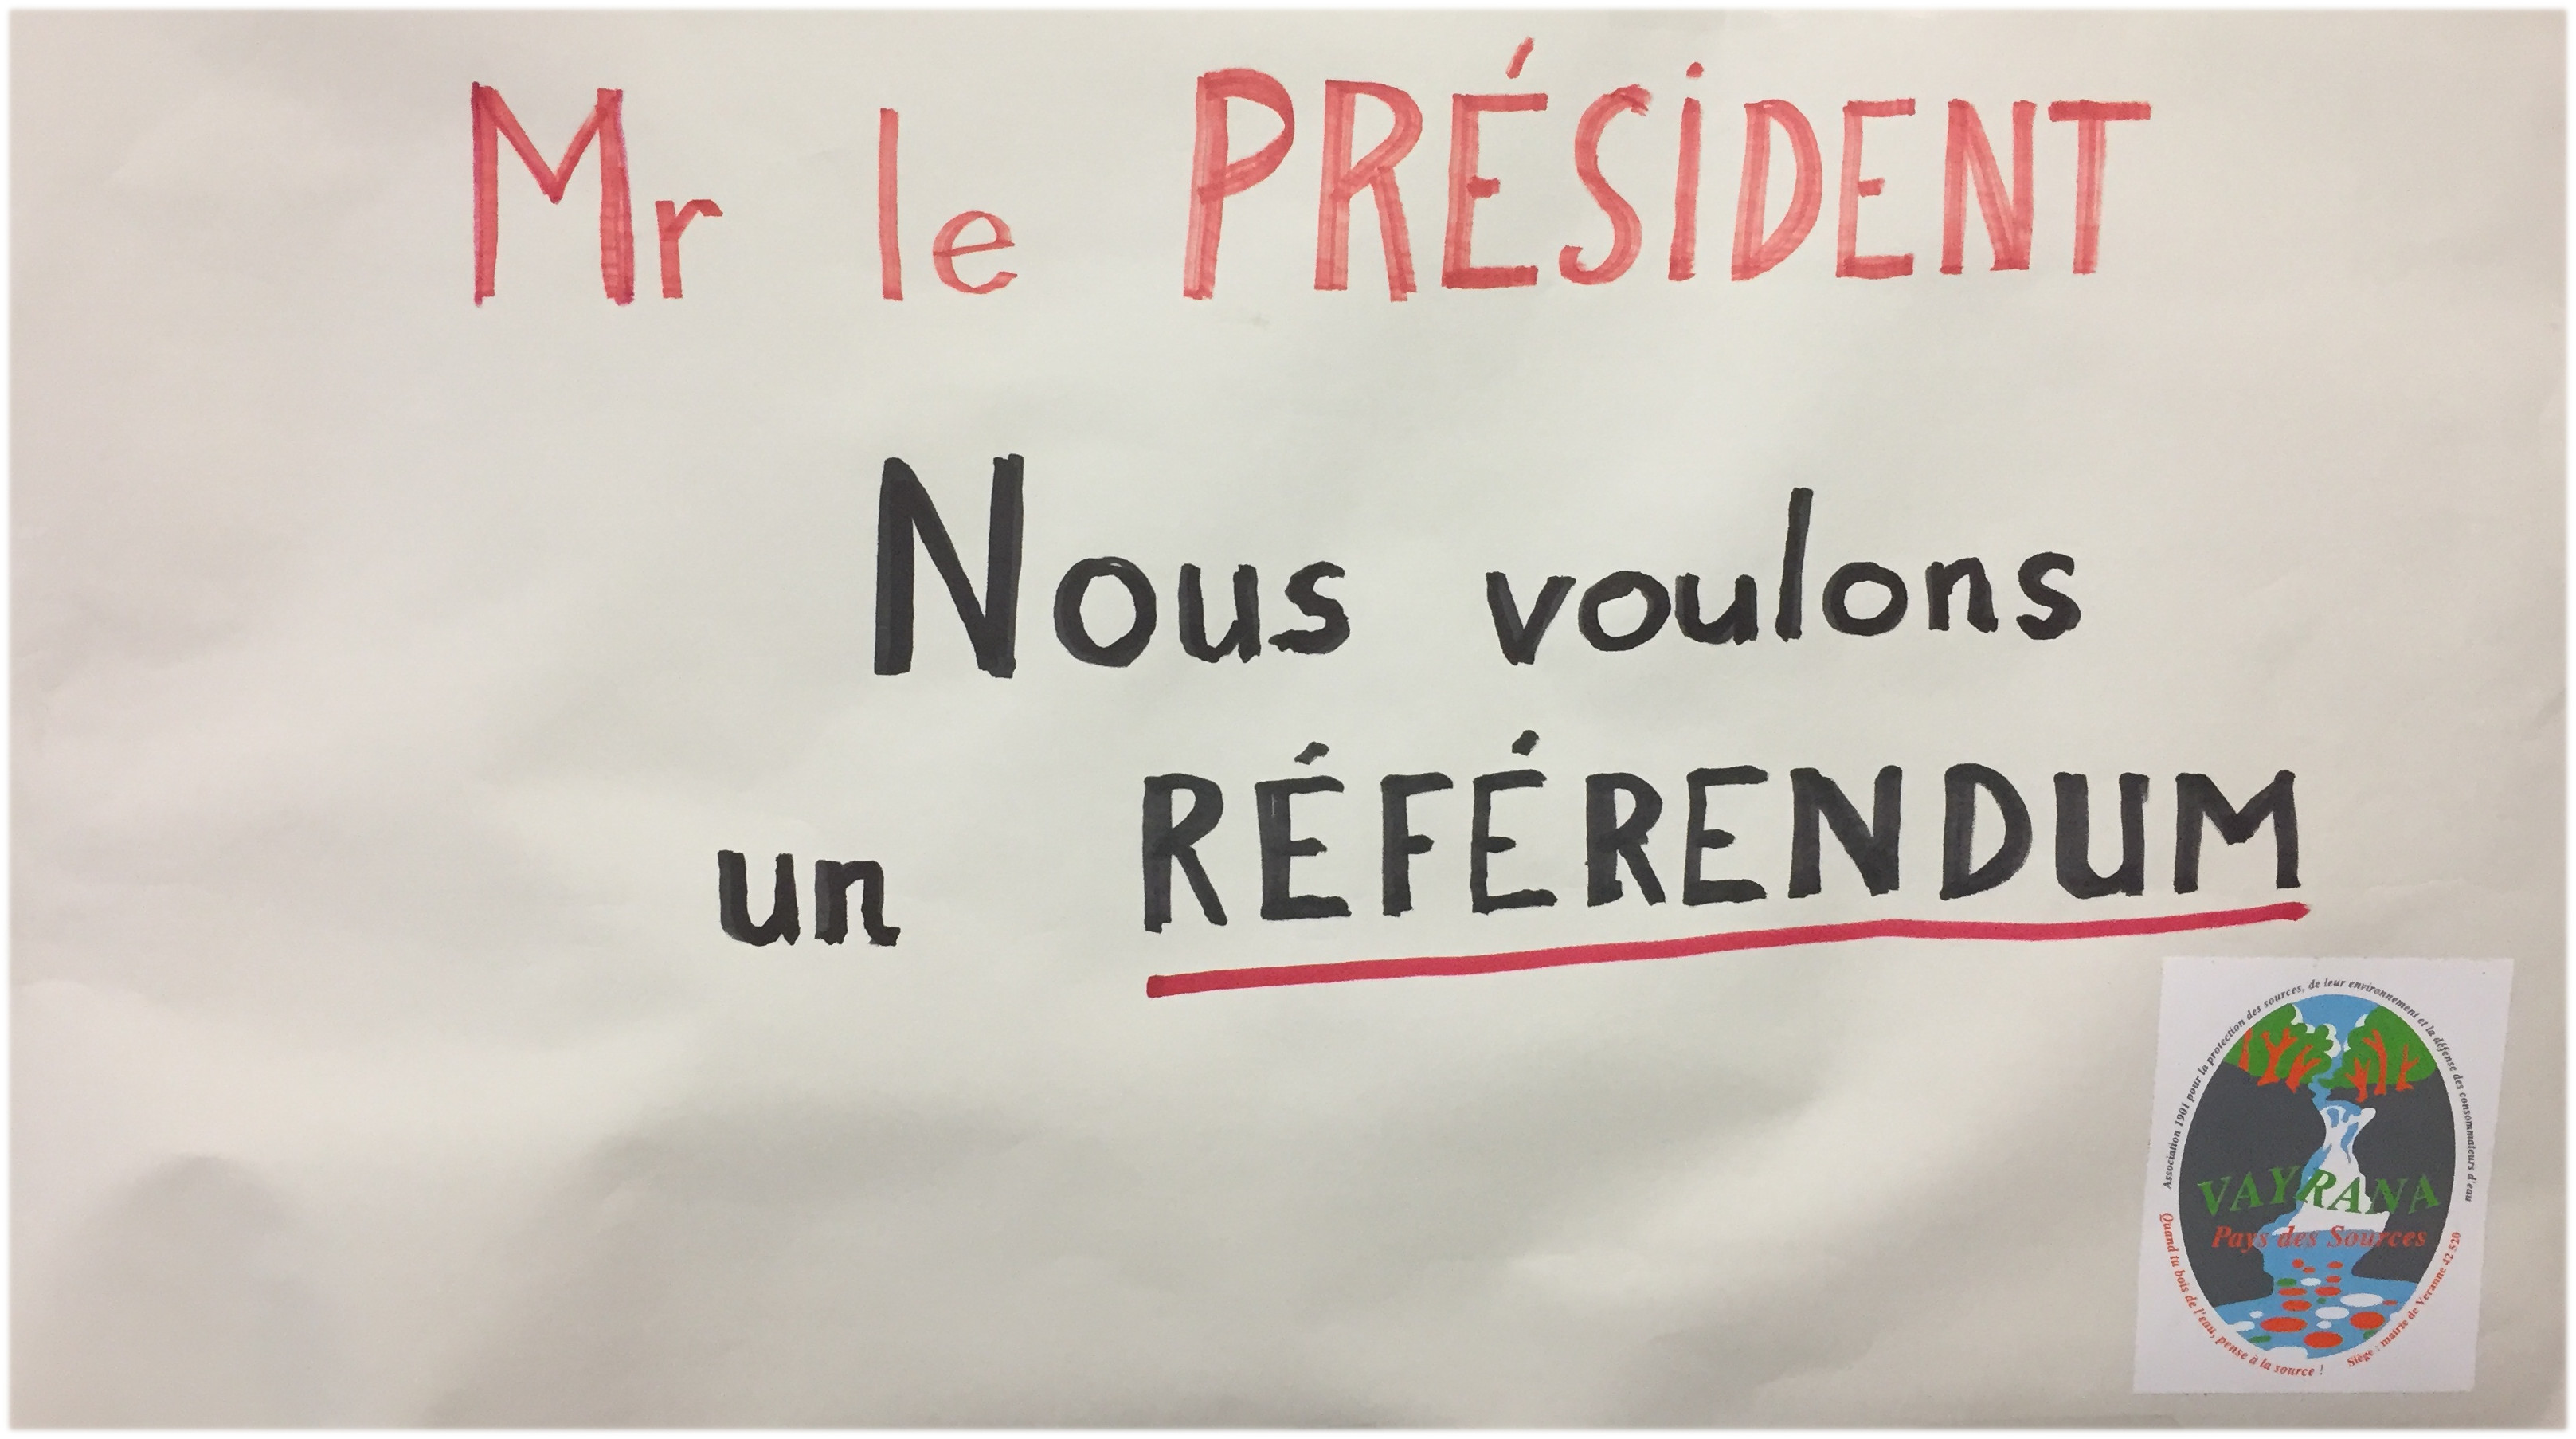 Mr le PRÉSIDENT
Nous voulons
un RÉFÉRENDUM
Association 1901 pour la protection des sources, de leur environnement et la défense des consommateurs d'eau
VAYRANA
Pays des Sources
Quand tu bois de l'eau, pense à la source !
Siège : mairie de Veranne 42 520